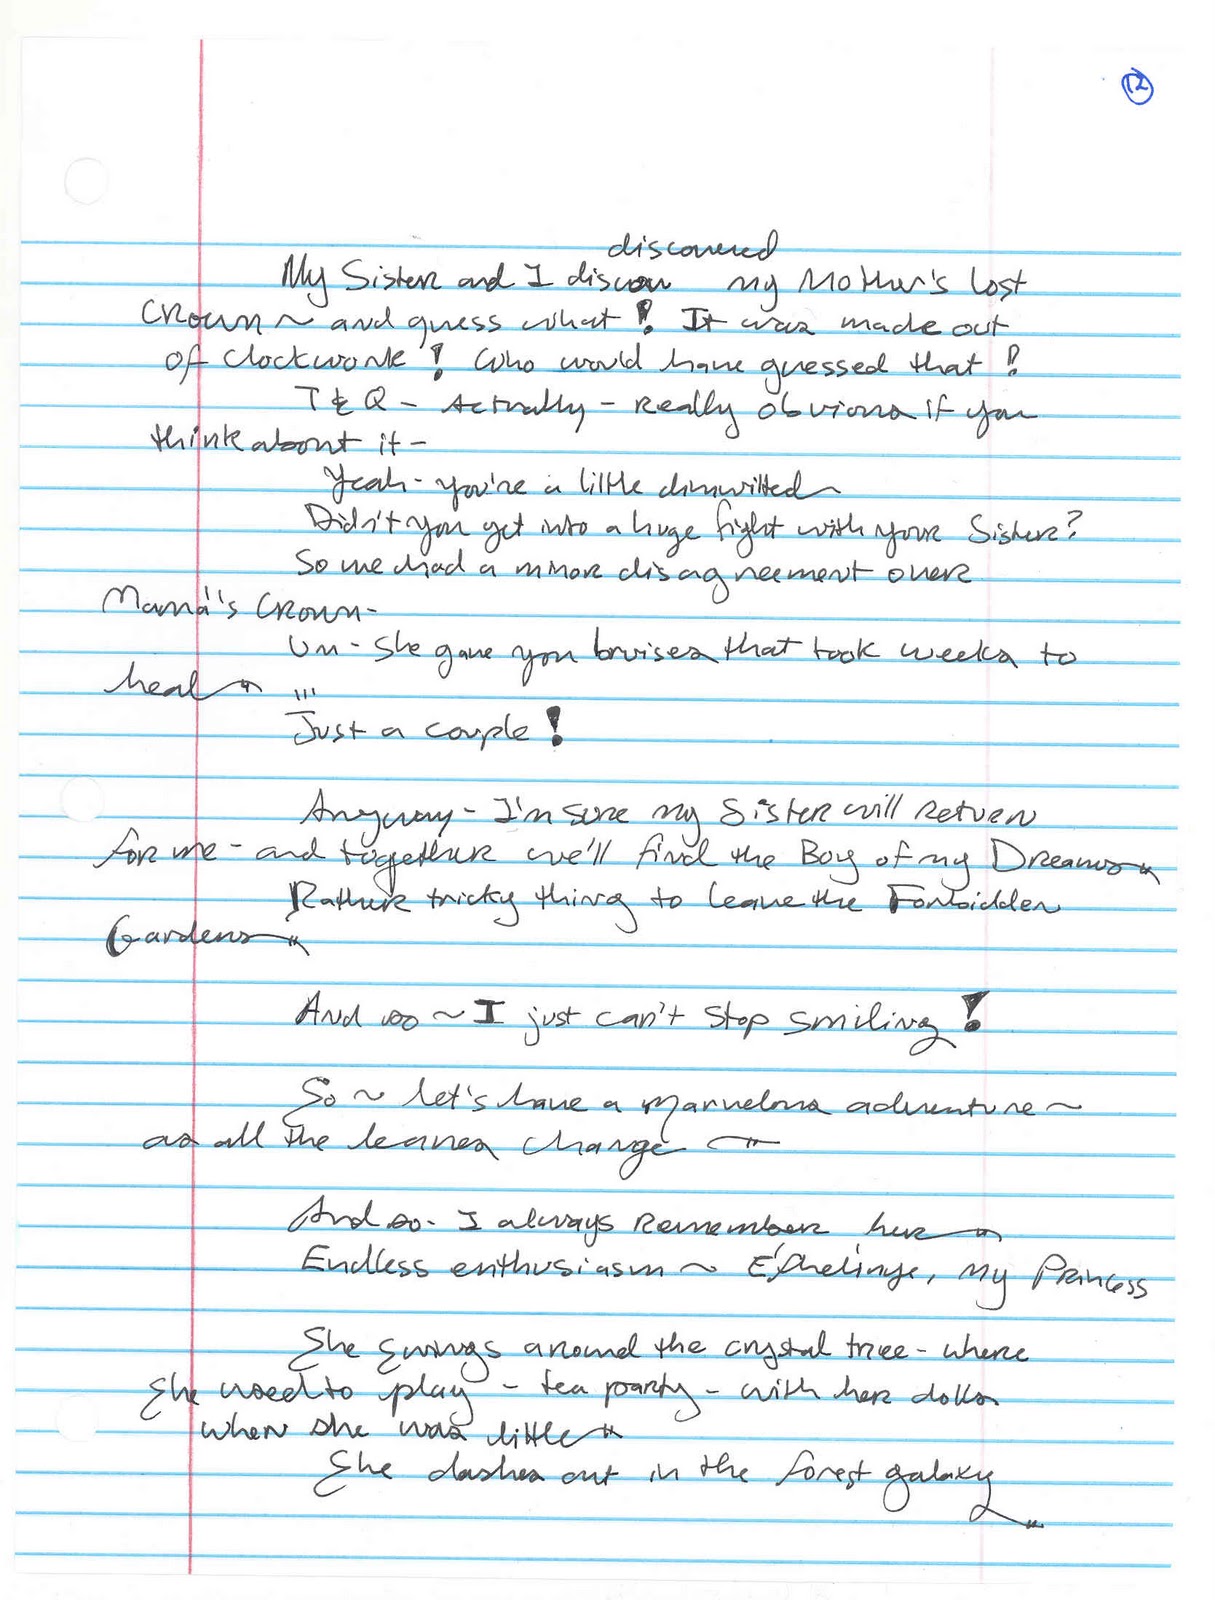 12
discovered
My Sister and I discov my Mother's lost
Crown ~ and guess what! It was made out
of clockwork! Who would have guessed that?
T & Q - Actually - Really obvious if you
think about it -
Yeah - you're a little dimwitted
Didn't you get into a huge fight with your Sister?
So we had a minor disagreement over
Mamá's Crown -
Um - She gave you bruises that took weeks to
heal
Just a couple!
Anyway - I'm sure my Sister will return
for me - and together we'll find the Boy of my Dreams
Rather tricky thing to leave the Forbidden
Gardens
And so ~ I just can't stop smiling!
So ~ let's have a marvelous adventure ~
as all the leaves change
And so - I always remember her
Endless enthusiasm ~ my Princess
She swings around the crystal tree - where
She used to play - tea party - with her dolls
when she was little
She dashes out in the forest galaxy